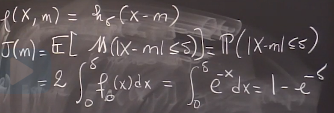 ρ(x,m) = h_δ(x-m)
J(m) = E[𝟙(|X-m|≤δ)] = ℙ(|X-m|≤δ)
= 2 ∫_0^δ f_0(x)dx = ∫_0^δ e^{-x}dx = 1-e^{-δ}